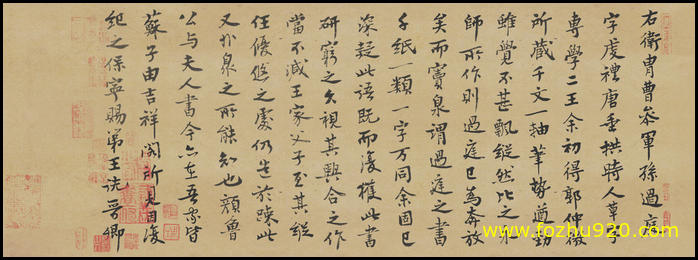 右衛胄曹叅軍孫過庭
字虔禮唐垂拱時人草字
專學二王余初得郭仲微
所藏千文一軸筆勢遒勁
雖覺不甚飄縱然比之永
師所作則過庭已為奔放
矣而竇臮謂過庭之書
千紙一類一字万同余固已
深疑此語既而復獲此書
研窮之久視其興合之作
當不減王家父子至其縱
任優悠之處仍造於疎此
又非臮之所能知也顏魯
公与夫人書今亦在吾家皆
蘇子由吉祥閣所見因復
紀之保寧賜第王詵晉卿
www.fozhu920.com